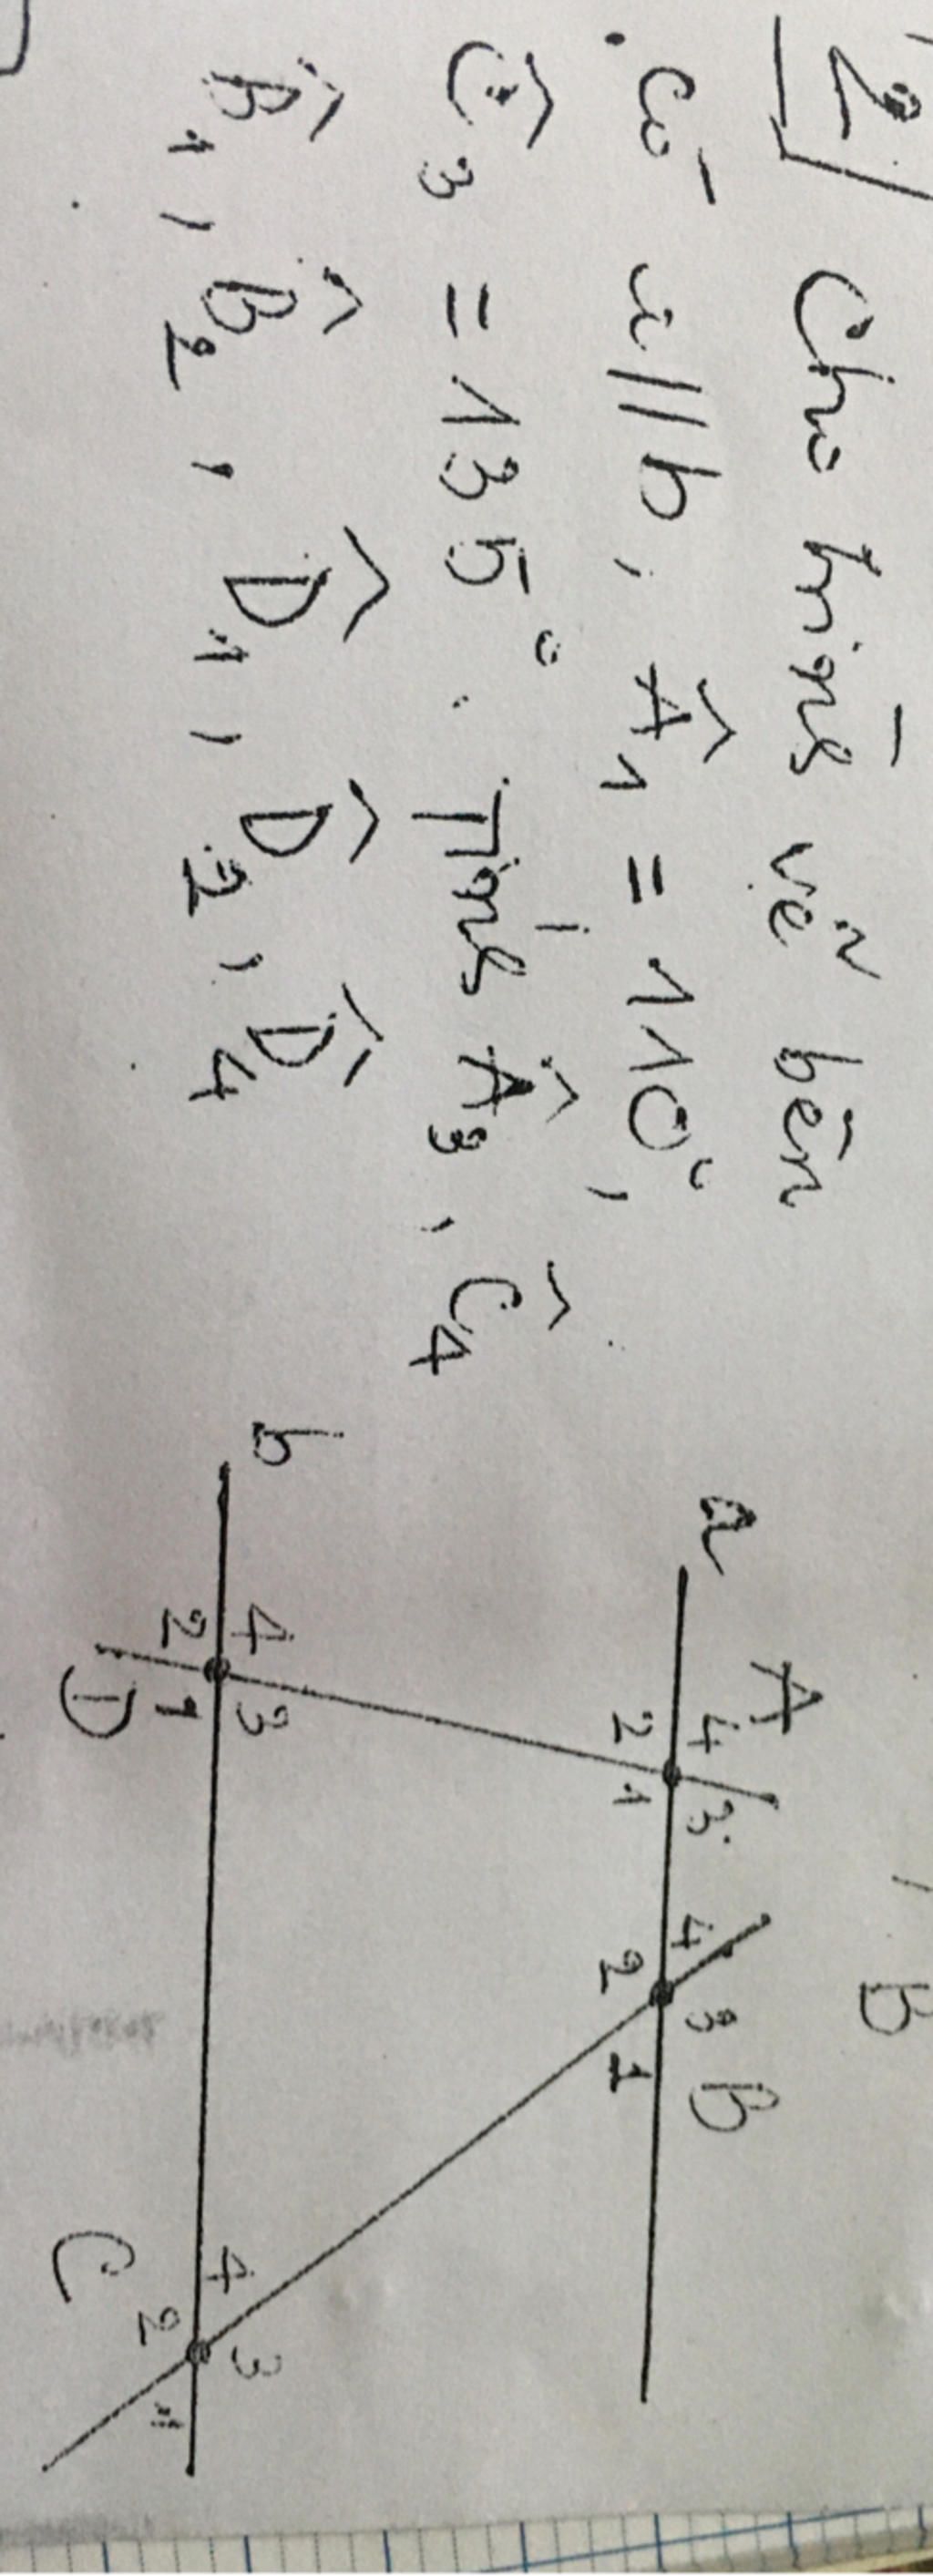 2/ Cho hình vẽ bên
có a//b, Â₁ = 110°,
Ĉ₃ = 135°. Tính Â₃, Ĉ₄
B̂₁, B̂₂, D̂₁, D̂₂, D̂₄
B
A
a
4 3
2 1
4 3 B
2 1
b
4 3
2 1
D
4 3
2 1
C